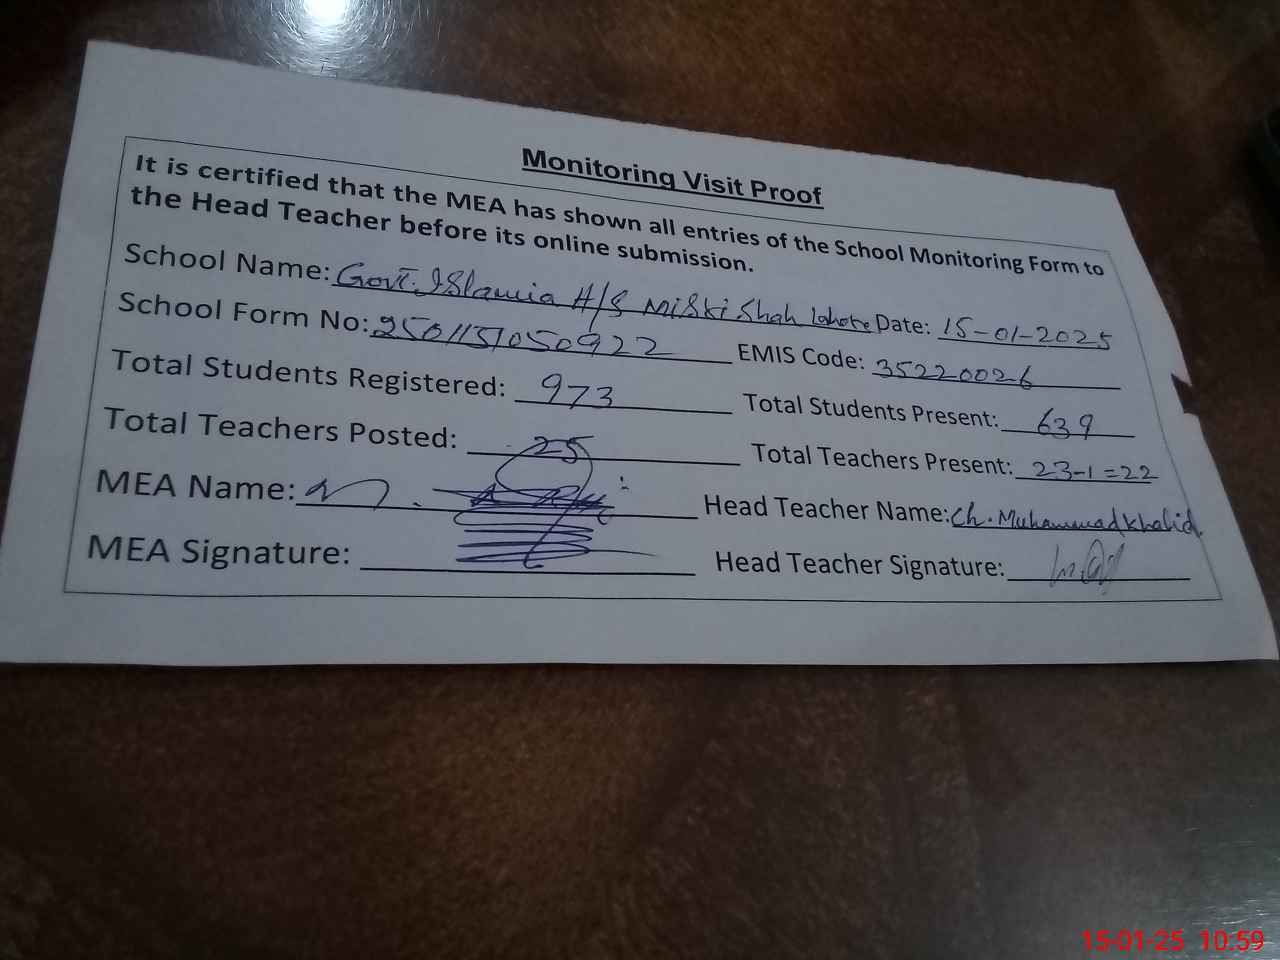 Monitoring Visit Proof
It is certified that the MEA has shown all entries of the School Monitoring Form to
the Head Teacher before its online submission.
School Name: Govt. Islamia H/S Miski Shah Lahore Date: 15-01-2025
School Form No: 2501151050922 EMIS Code: 35220026
Total Students Registered: 973 Total Students Present: 639
Total Teachers Posted: 25 Total Teachers Present: 23-1=22
MEA Name: Head Teacher Name: Ch. Muhammad Khalid
MEA Signature: Head Teacher Signature:
15-01-25 10:59